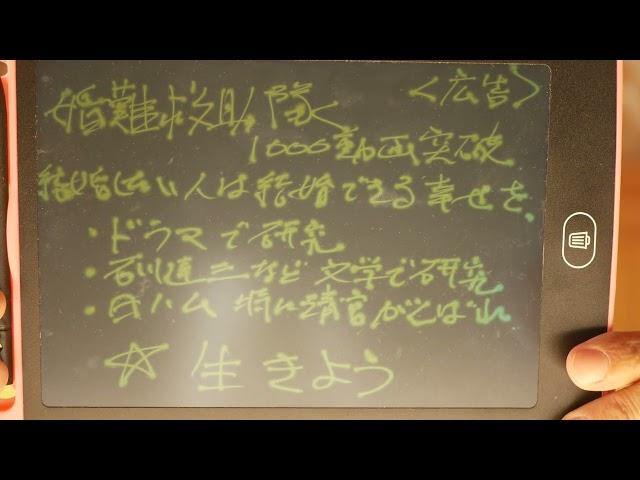 婚難救助隊 <広告>
1000動画突破
結婚したい人は結婚できる幸せを、
・ドラマで研究
・石川達三など文学で研究
・日ハム 特に清宮がんばれ
☆ 生きよう